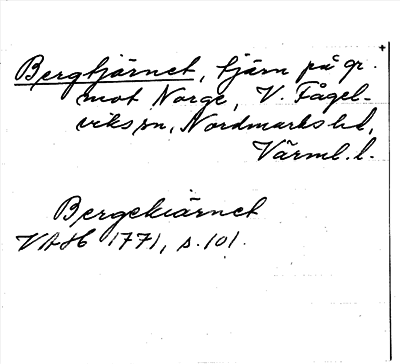 Bergtjärnet, tjärn på gr.
mot Norge, V. Fågel-
viks sn, Nordmarks hd,
Värml. l.
Bergekiärnet
VAH 1771, s. 101.